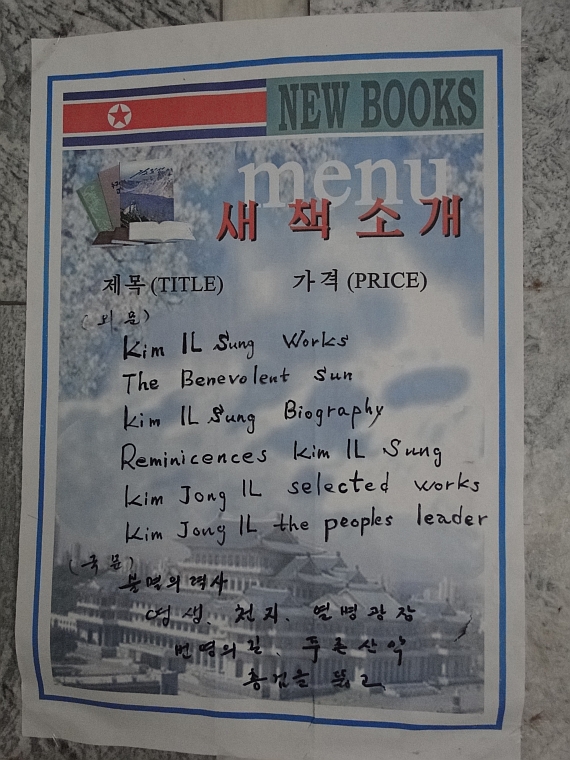 NEW BOOKS
menu
새 책 소개
제목 (TITLE) 가격 (PRICE)
(외문)
Kim IL Sung Works
The Benevolent Sun
Kim IL Sung Biography
Reminicences Kim IL Sung
Kim Jong IL selected works
Kim Jong IL the peoples leader
(국문)
불멸의 력사
영생. 천지. 열병광장
번영의 길. 푸른산악
총검을 들고